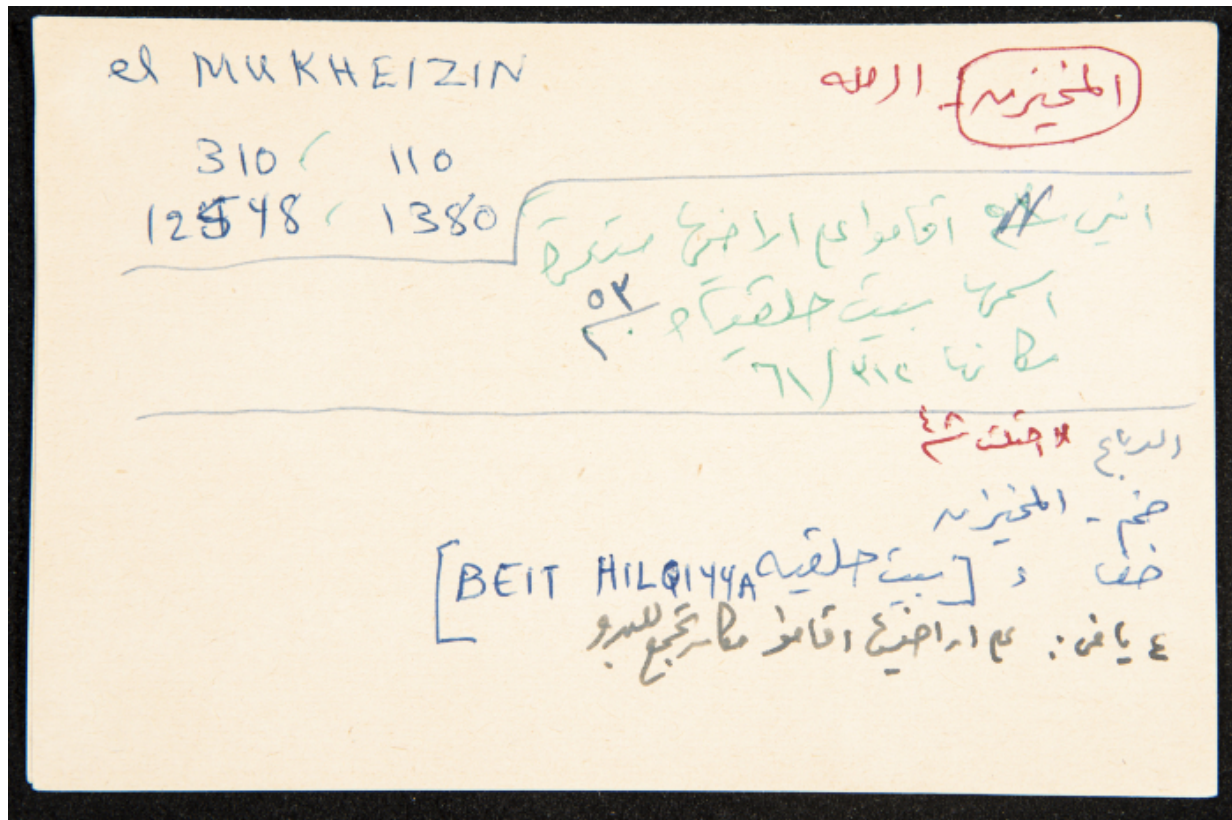 el MUKHEIZIN
المخيزن - الرمله
310 ، 110
12548 ، 1380
اقاموا على اراضيها مستعمرة
اسمها بيت حلقيا ٥٣
مكانها ٣١٢/٦١
الدباغ احتلت ٤٨
ضم - المخيزن
خفا، [بيت حلقيه BEIT HILQIYYA]
٤ يافي: على اراضيها اقاموا مكان تجمع للبدو